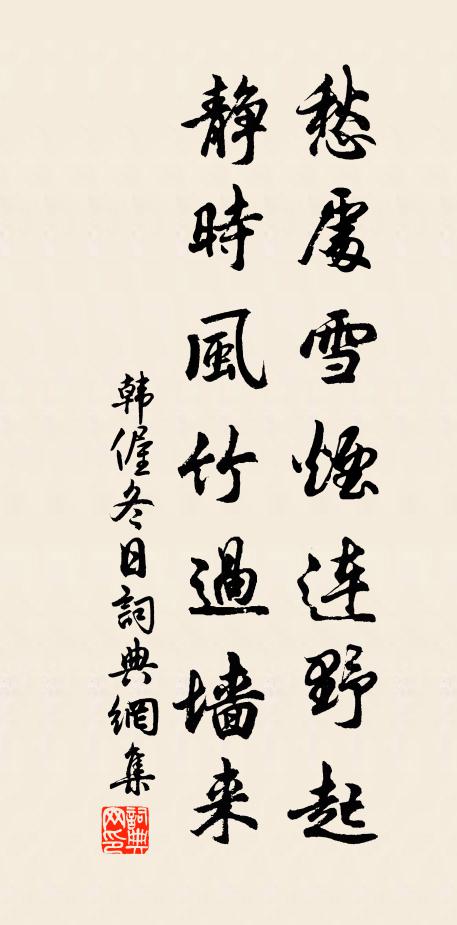 愁處雪煙連野起
靜時風竹過墙来
韩偓冬日詞典網集
詞典網印